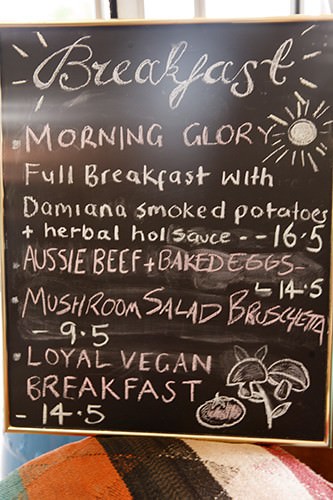 Breakfast
MORNING GLORY
FULL BREAKFAST WITH
Damiana smoked potatoes
+ herbal hol sauce -- 16.5
AUSSIE BEEF + BAKED EGGS-
- 14.5
MUSHROOM SALAD BRUSCHETTA
- 9.5
LOYAL VEGAN
BREAKFAST
- 14.5